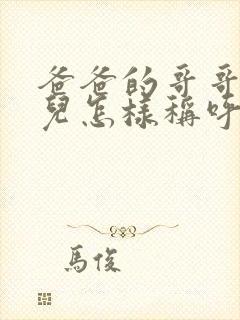 爸爸的哥哥
兒怎樣稱呼
馬俊